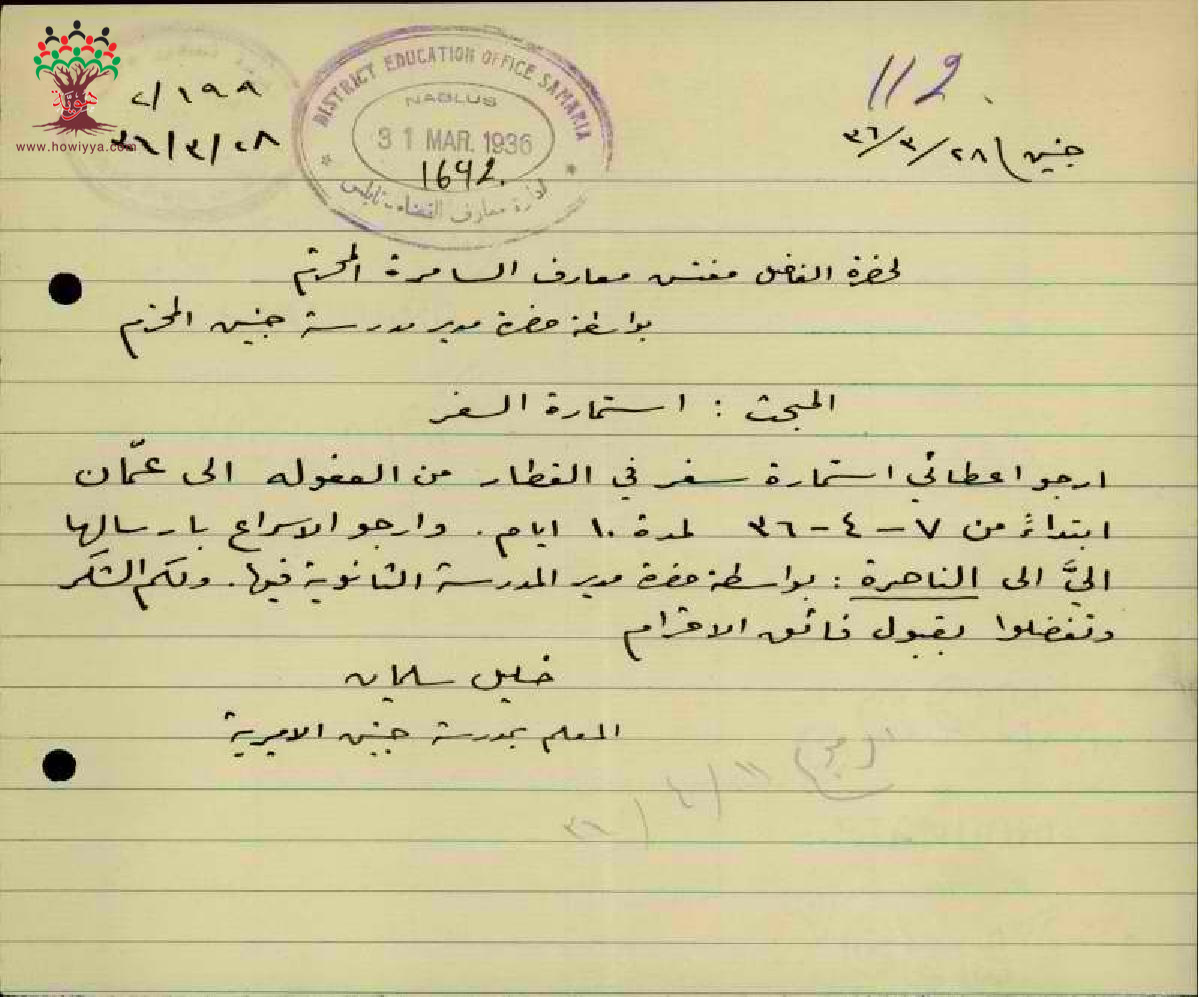 112
جنين / ٢٨ / ٣ / ٣٦
DISTRICT EDUCATION OFFICE SAMARIA
NABLUS
31 MAR. 1936
1692.
ادارة معارف القضاء - نابلس
١٩٩ / ٢
٢٨ / ٣ / ٣٦
www.howiyya.com
لحضرة الفاضل مفتش معارف السامرة المحترم
بواسطة حضرة مدير مدرسة جنين المحترم
المبحث : استمارة السفر
ارجو اعطائي استمارة سفر في القطار من العفوله الى عمّان
ابتداءً من ٧ - ٤ - ٣٦ لمدة ١٠ ايام. وارجو الاسراع بارسالها
اليَّ الى الناصرة : بواسطة حضرة مدير المدرسة الثانوية فيها. ولكم الشكر
وتفضلوا بقبول فائق الاحترام
خليل سليمان
المعلم بمدرسة جنين الاميرية
١١ / ٤ / ٣٦